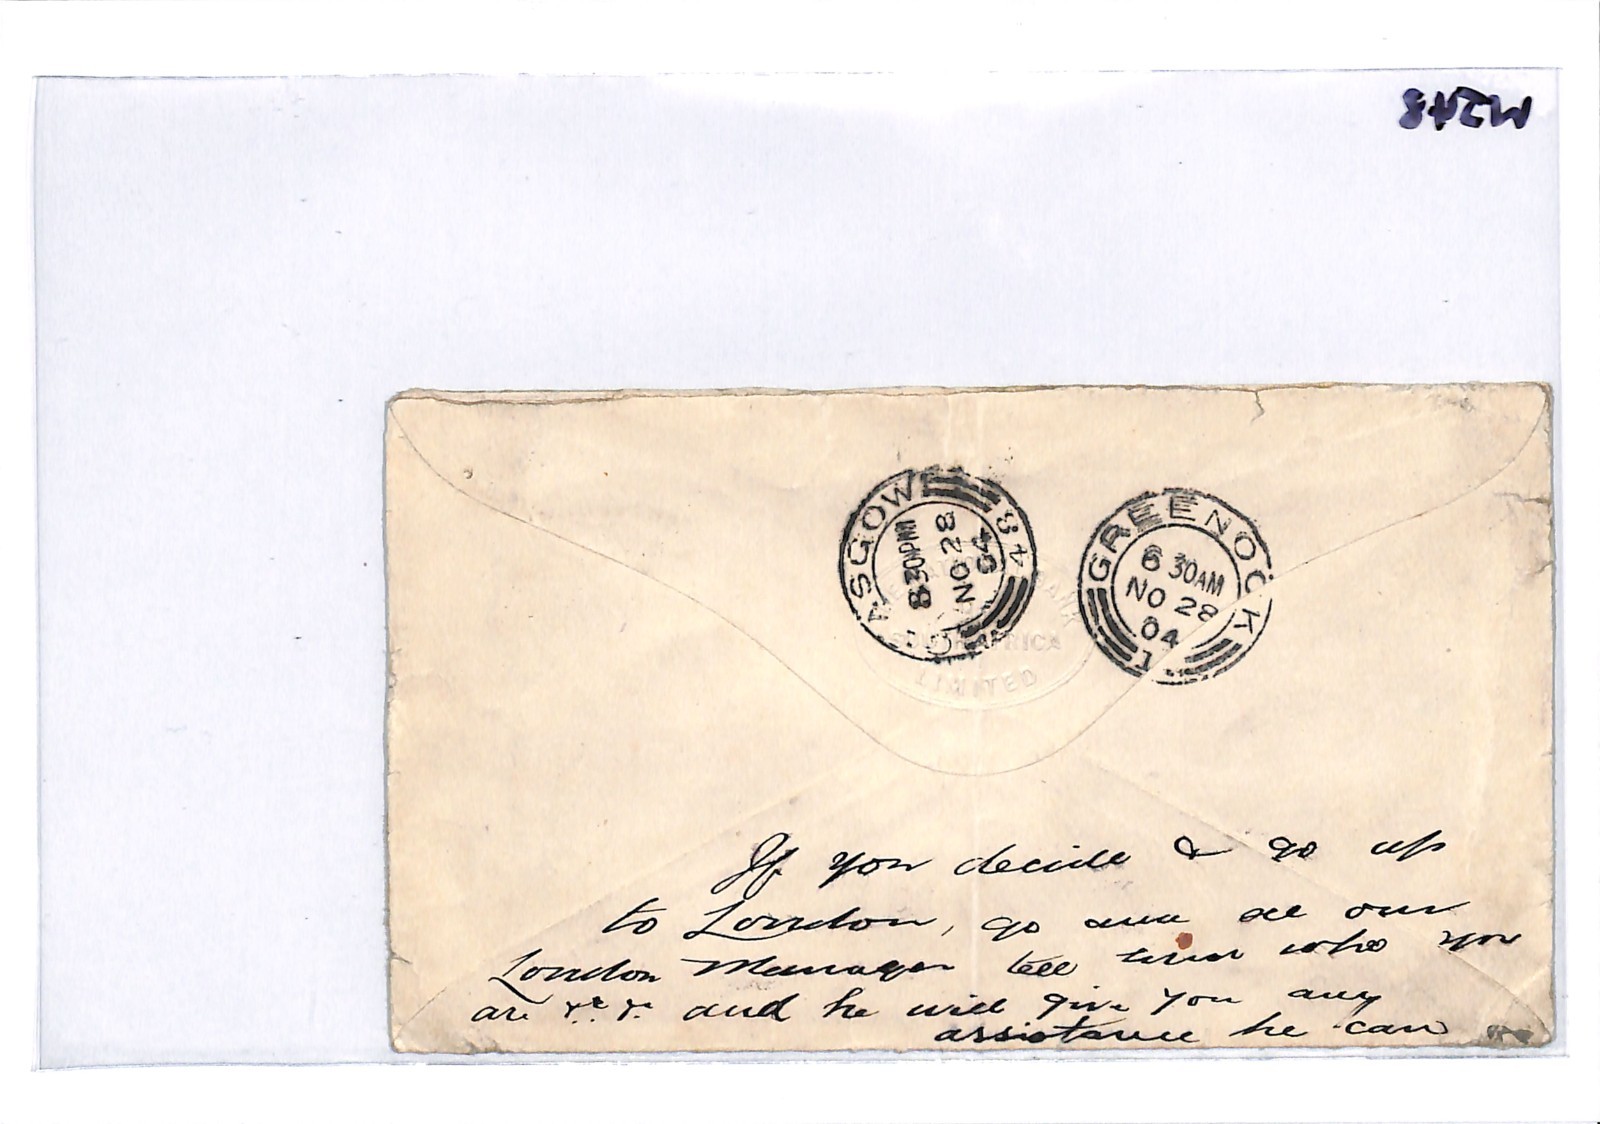 M248
GLASGOW
8 30PM
NO 28
04
84
GREENOCK
6 30AM
NO 28
04
1
BANK
SOUTH AFRICA
LIMITED
If you decide & go up
to London, go and see our
London Manager tell him who you
are &c &c and he will give you any
assistance he can